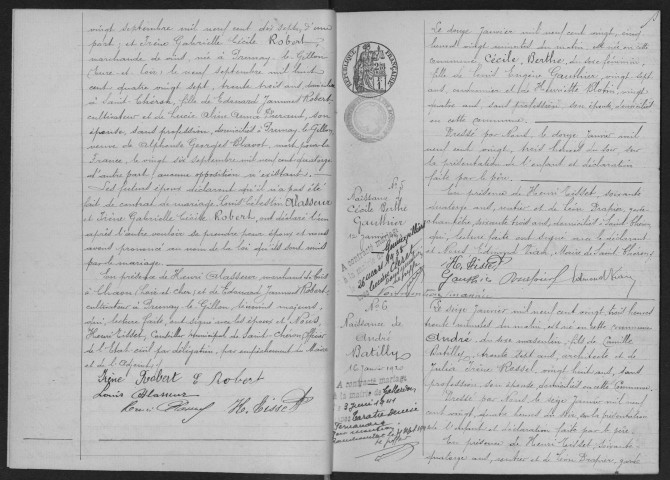 vingt septembre mil neuf cent dix sept, d'une
part; et Irène Gabrielle Cécile Robert,
marchande de
Eure et Loir: le neuf septembre mil huit
cent quatre vingt sept, trente trois ans, domiciliée
à Saint Chéron, fille de Edouard Jammet Robert,
cultivateur et de Lucie Aline Armée son
épouse, sans profession, domiciliés à Prunay le Gillon,
veuve de Alphonse Georges Chavot, mort pour la
France, le vingt six septembre mil neuf cent quatorze
d'autre part; aucune opposition n'existant.
Les futurs époux déclarent qu'il n'a pas été
fait de contrat de mariage. Louis Célestin Alasseur
et Irène Gabrielle Cécile Robert, ont déclaré l'un
après l'autre vouloir se prendre pour époux et nous
avons prononcé au nom de la loi qu'ils sont unis
par le mariage.
En présence de Henri Alasseur, marchand de
à (Loir et Cher) et de Edouard Jammet Robert,
cultivateur à Prunay le Gillon, témoins majeurs
qui, lecture faite, ont signé avec les époux et Nous,
Henri Tisset, Conseiller municipal de Saint Chéron, Officier
de l'Etat civil par délégation, par empêchement du Maire
et de l'Adjoint.
Irène Robert E Robert
Louis Alasseur
H. Tisset
RÉPUBLIQUE FRANÇAISE
N° 5
Naissance de
Cécile Berthe
Gauthier
12 janvier
A contracté mariage
26 mars
N° 6
Naissance de
André
Batilly
16 janvier 1920
A contracté mariage
à la mairie de
3 juin 1941
avec
Le douze janvier mil neuf cent vingt, cinq
heures vingt minutes du matin, est née en cette
commune, Cécile Berthe, du sexe féminin,
fille de Louis Eugène Gauthier, vingt sept
ans, et de Henriette Blotin, vingt
quatre ans, sans profession, son épouse, domiciliés
en cette commune.
Dressé par Nous le douze janvier mil
neuf cent vingt, trois heures du soir, sur
la présentation de l'enfant et déclaration
faite par le père.
En présence de Henri Tisset, soixante
quatorze ans, rentier et de Léon Drapier, garde
champêtre, soixante trois ans, domiciliés à Saint Chéron,
qui, lecture faite, ont signé avec le déclarant
et Nous, Edmond Maire de Saint Chéron.
H. Tisset
Gauthier Edmond
Le seize janvier mil neuf cent vingt, trois heures
trente minutes du matin, est né en cette commune
André, du sexe masculin, fils de Camille
Batilly, trente sept ans, architecte et de
Julia Irène Rossel, vingt huit ans, sans
profession, son épouse, domiciliés en cette Commune.
Dressé par Nous le seize janvier mil neuf
cent vingt, quatre heures du soir, sur la présentation
de l'enfant et déclaration faite par le père.
En présence de Henri Tisset, soixante
quatorze ans, rentier et de Léon Drapier, garde